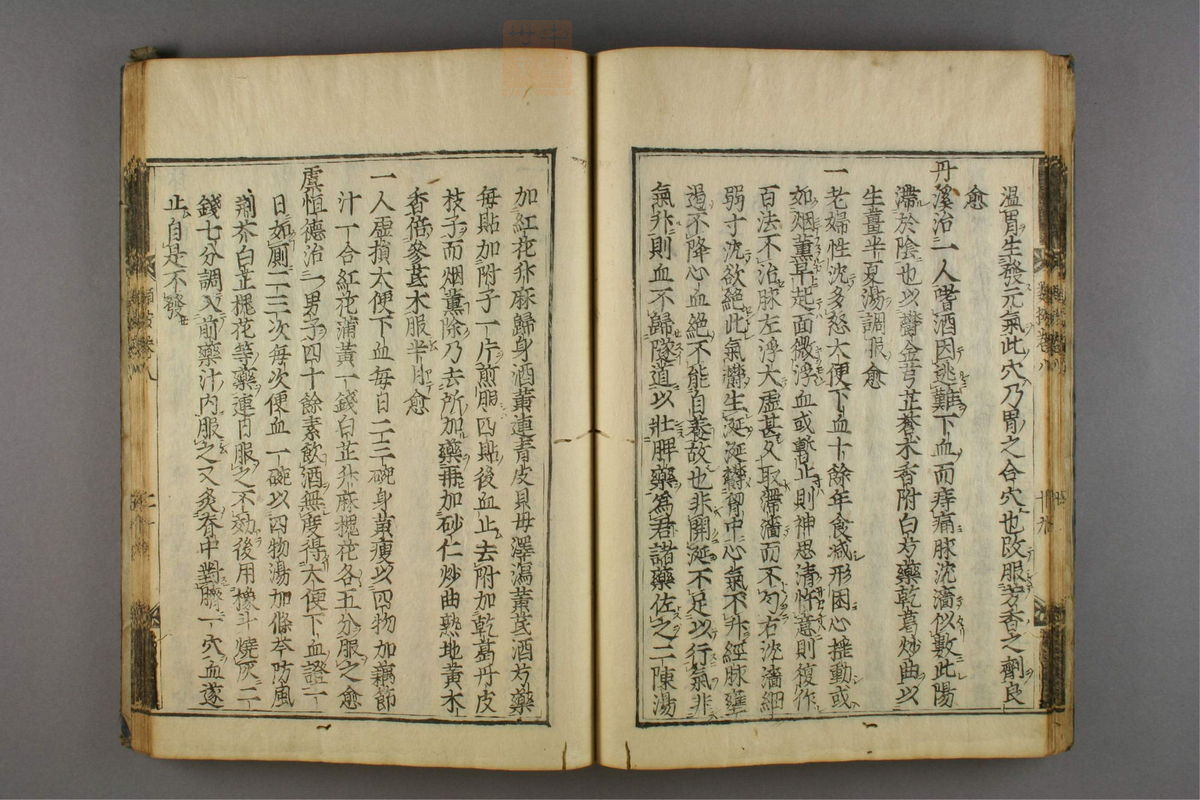 温胃生發元氣此穴乃胃之合穴也改服芳香之劑良
愈
丹溪治一人嗜酒因逃難下血而痔痛脉沈濇似數此陽
滯於陰也以鬱金芎芷蒼朮香附白芍藥乾葛炒曲以
生薑半夏湯調服愈
一老婦性沈多怒大便下血十餘年食減形困心揺動或
如烟薫早起面微浮血或暫止則神思清忤意則復作
百法不治脉左浮大虚甚久取滯濇而不匀右沈濇細
弱寸沈欲絶此氣鬱生涎涎鬱胷中心氣不升經脉壅
遏不降心血絶不能自養故也非開涎不足以行氣非
氣升則血不歸隧道以壯脾藥為君諸藥佐之二陳湯
加紅花升麻歸身酒黄連青皮貝母澤瀉黄芪酒芍藥
毎貼加附子一片煎服四貼後血止去附加乾葛丹皮
枝子而烟薫除乃去所加藥再加砂仁炒曲熟地黄木
香倍參芪朮服半月愈
一人虚損大便下血毎日二三碗身黄瘦以四物加藕節
汁一合紅花蒲黄一錢白芷升麻槐花各五分服之愈
虞恒德治一男子四十餘素飲酒無度得大便下血證一
日如厠二三次毎次便血一碗以四物湯加條芩防風
荊芥白芷槐花等藥連日服之不効後用橡斗燒灰二
錢七分調入前藥汁内服之又灸脊中對臍一穴血遂
止自是不發